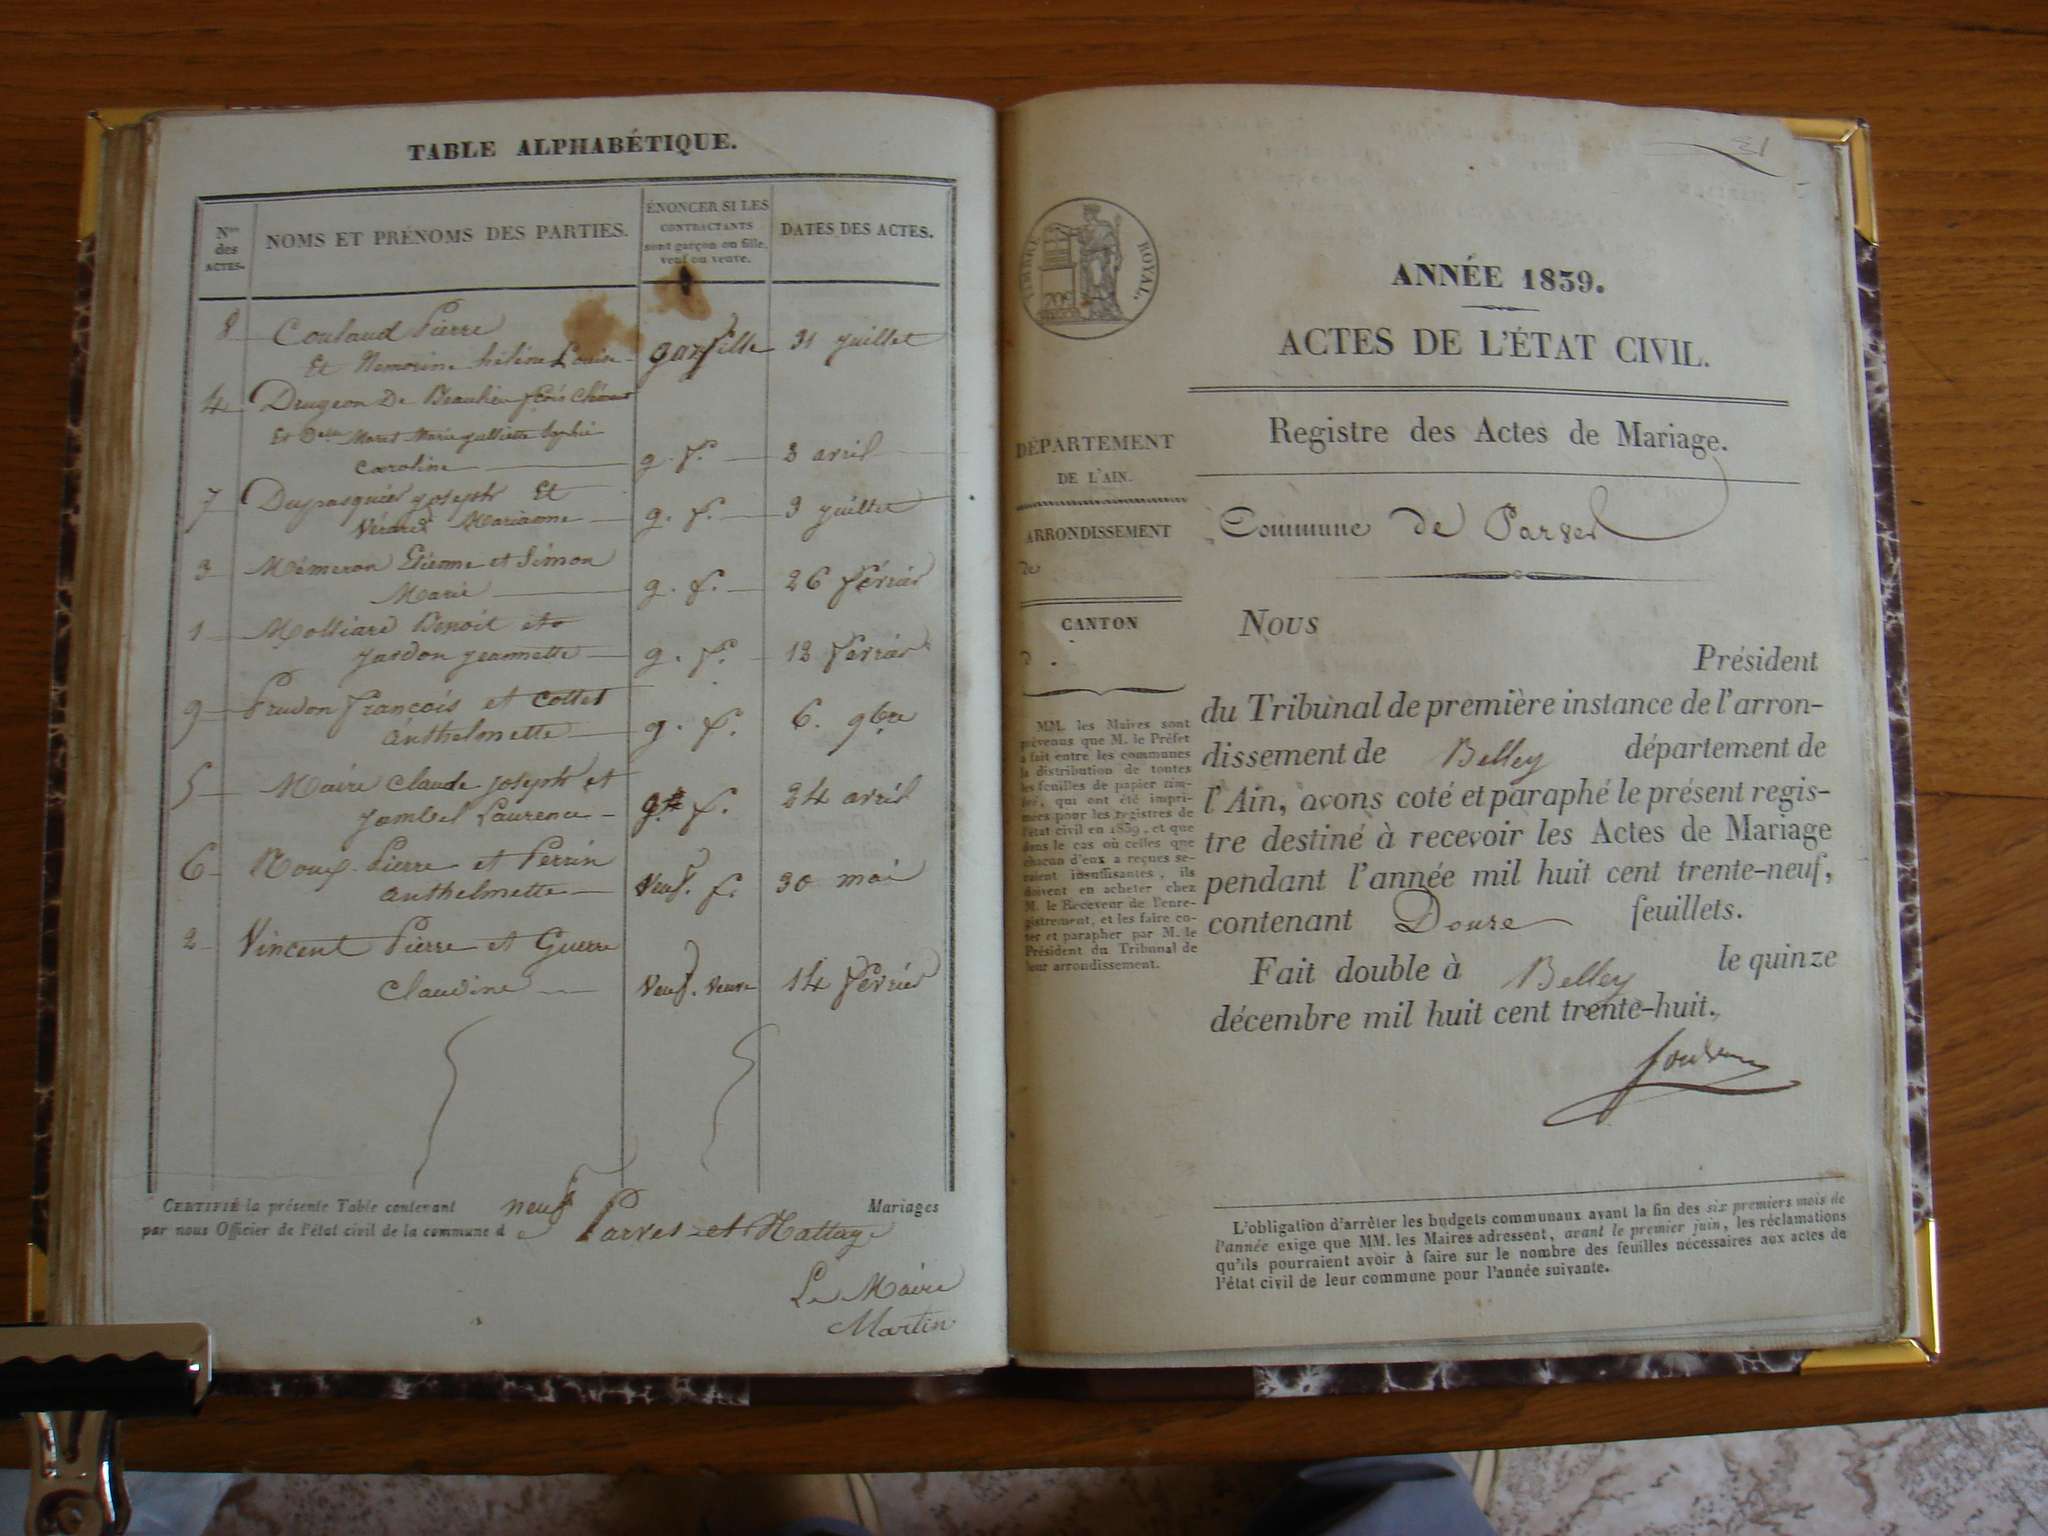 TABLE ALPHABÉTIQUE.
Nos des ACTES.
NOMS ET PRÉNOMS DES PARTIES.
ÉNONCER SI LES CONTRACTANTS sont garçon ou fille, veuf ou veuve.
DATES DES ACTES.
8 Coulaud Pierre
Et Nemorine hélène Louise garfille 31 juillet
4 Drugeon De Beaulieu
Et Delle Maret Marie julliette Sophie
Caroline g. f. 3 avril
7 Dupasquier joseph Et
Verard Marianne g. f. 9 juillet
3 Mémeron Etienne et Simon
Marie g. f. 26 février
1 Molliard Benoit et
jardon jeannette g. f. 12 février
9 Prudon françois et Cottet
anthelmette g. f. 6. 9bre
5 Maire Claude joseph et
Laurence g. f. 24 avril
6 Pierre et Perrin
anthelmette Veuf. f. 30 mai
2 Vincent Pierre et Guerre
Claudine Veuf. Veuve 14 février
CERTIFIÉ la présente Table contenant neuf Mariages
par nous Officier de l'état civil de la commune de Parves et Nattage
Le Maire
Martin
21
TIMBRE ROYAL.
ANNÉE 1839.
ACTES DE L'ÉTAT CIVIL.
DÉPARTEMENT
DE L'AIN.
ARRONDISSEMENT
de
CANTON
d
MM. les Maires sont
prévenus que M. le Préfet
a fait entre les communes
la distribution de toutes
les feuilles de papier tim-
bré, qui ont été impri-
mées pour les registres de
l'état civil en 1839, et que
dans le cas où celles que
chacun d'eux a reçues se-
raient insuffisantes, ils
doivent en acheter chez
M. le Receveur de l'enre-
gistrement, et les faire co-
ter et parapher par M. le
Président du Tribunal de
leur arrondissement.
Registre des Actes de Mariage.
Commune de Parves
Nous
Président
du Tribunal de première instance de l'arron-
dissement de Belley département de
l'Ain, avons coté et paraphé le présent regis-
tre destiné à recevoir les Actes de Mariage
pendant l'année mil huit cent trente-neuf,
contenant Douze feuillets.
Fait double à Belley le quinze
décembre mil huit cent trente-huit.
L'obligation d'arrêter les budgets communaux avant la fin des six premiers mois de
l'année exige que MM. les Maires adressent, avant le premier juin, les réclamations
qu'ils pourraient avoir à faire sur le nombre des feuilles nécessaires aux actes de
l'état civil de leur commune pour l'année suivante.